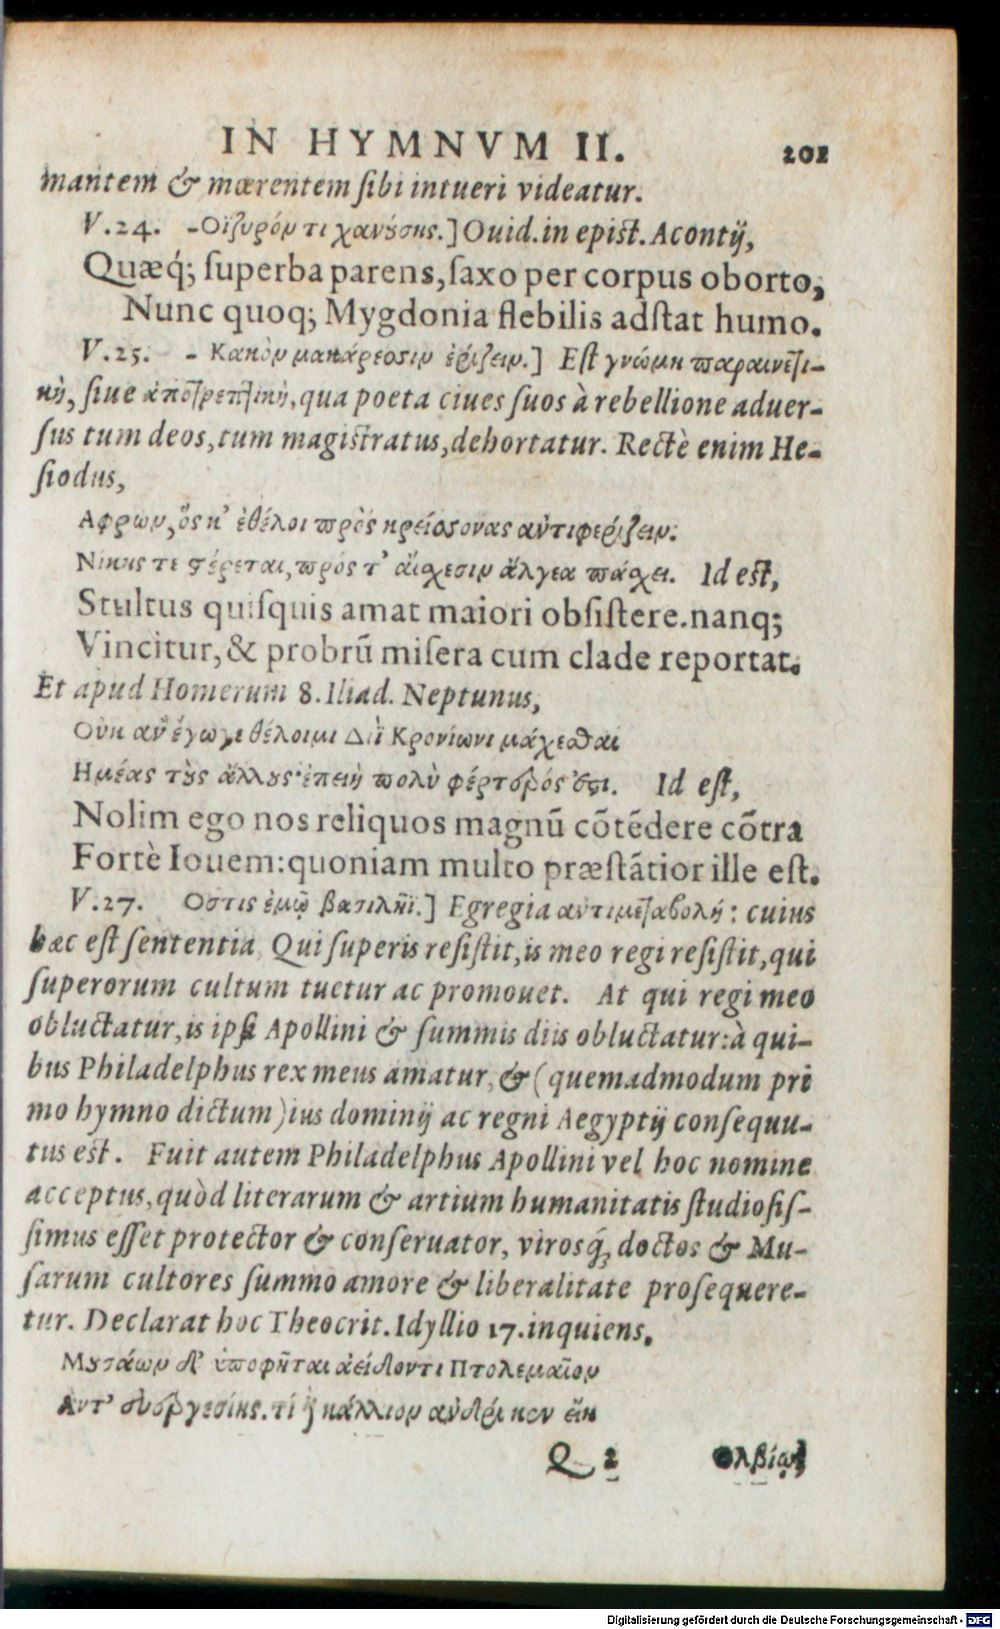 IN HYMNVM II. 202
mantem & mœrentem sibi intueri videatur.
V.24. -Οϊζυρόν τι χανούσης.] Ouid. in epist. Acontij,
Quæq́; superba parens, saxo per corpus oborto,
Nunc quoq; Mygdonia flebilis adstat humo.
V.25. - Κακὸν μακάρεσσιν ἐρίζειν.] Est γνώμη παραινετι-
κὴ, siue ἀποτρεπτικὴ, qua poeta ciues suos à rebellione aduer-
sus tum deos, tum magistratus, dehortatur. Rectè enim He-
siodus,
Αφρων, ὅς κ' ἐθέλοι πρὸς κρείσσονας ἀντιφερίζειν:
Νίκης τε στέρεται, πρός τ' αἴσχεσιν ἄλγεα πάσχει. Id est,
Stultus quisquis amat maiori obsistere. nanq;
Vincitur, & probrũ misera cum clade reportat.
Et apud Homerum 8. Iliad. Neptunus,
Οὐκ ἂν ἔγωγε θέλοιμι Διῒ Κρονίωνι μάχεσθαι
Ημέας τοὺς ἄλλους· ἐπειὴ πολὺ φέρτερός ἐστι. Id est,
Nolim ego nos reliquos magnũ cõtẽdere cõtra
Fortè Iouem: quoniam multo præstãtior ille est.
V.27. Οστις ἐμῷ βασιλῆϊ.] Egregia ἀντιμεταβολή: cuius
hæc est sententia, Qui superis resistit, is meo regi resistit, qui
superorum cultum tuetur ac promouet. At qui regi meo
obluctatur, is ipsi Apollini & summis diis obluctatur: à qui-
bus Philadelphus rex meus amatur, & (quemadmodum pri
mo hymno dictum) ius dominij ac regni Aegyptij consequu-
tus est. Fuit autem Philadelphus Apollini vel hoc nomine
acceptus, quòd literarum & artium humanitatis studiosis-
simus esset protector & conseruator, virosq́; doctos & Mu-
sarum cultores summo amore & liberalitate prosequere-
tur. Declarat hoc Theocrit. Idyllio 17. inquiens,
Μουσάων δ' ὑποφῆται ἀείδοντι Πτολεμαῖον
Αντ' εὐεργεσίης. τί δὲ κάλλιον ἀνδρί κεν εἴη
Q 2 ὀλβίῳ,
Digitalisierung gefördert durch die Deutsche Forschungsgemeinschaft - DFG